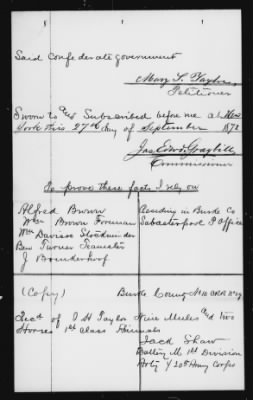 Said Confederate government
Mary S. Taylor
Petitioner
Sworn to and Subscribed before me at New
York this 27th day of September 1872
Jas Edwd Graybill
Commissioner
To prove these facts I rely on
Alfred Brown Residing in Burke Co
Wm Brown Foreman Sabasterford P Office
Wm Davison
Ben Turner Teamster
J
(Copy) Burke County
Recd of J H Taylor Five Mules and two
Horses 1st class Animals
Jack Shaw
Battery M 1st Division
Arty of 20th Army Corps